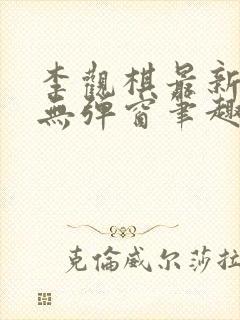 李觀棋最新
無彈窗筆趣
克倫威尔莎拉